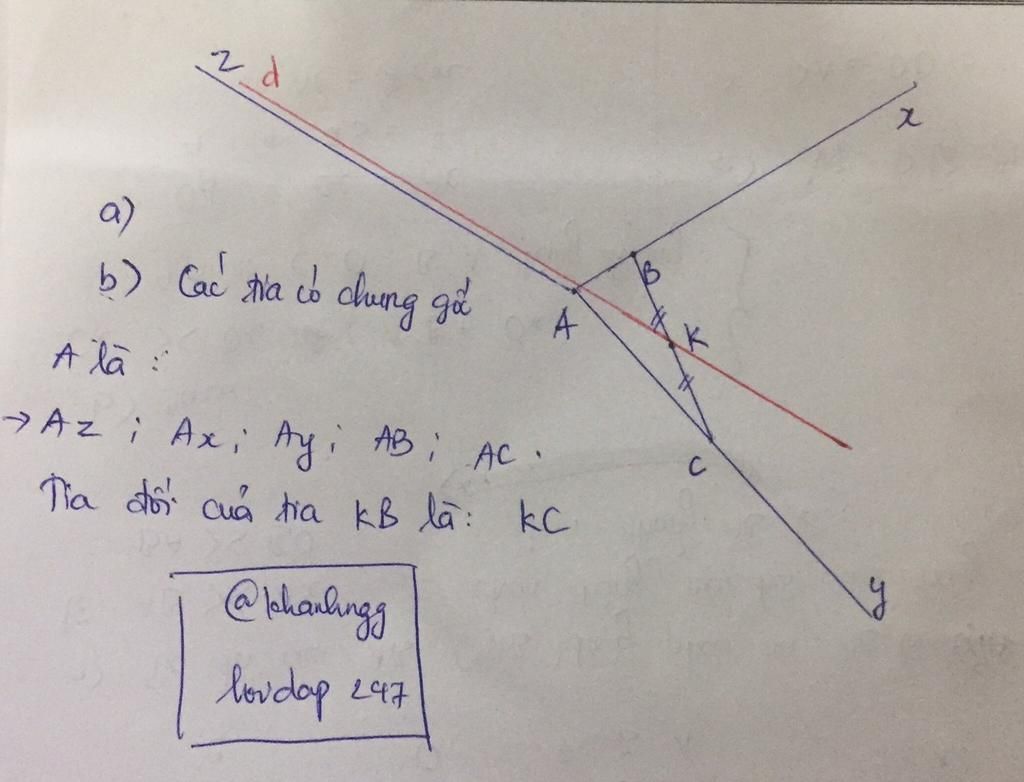 z
d
x
a)
B
b) Các tia có chung gốc
A
K
A là :
→ Az ; Ax ; Ay ; AB ; AC .
C
Tia đối của tia KB là: KC
y
@khanhngg
loidap 247